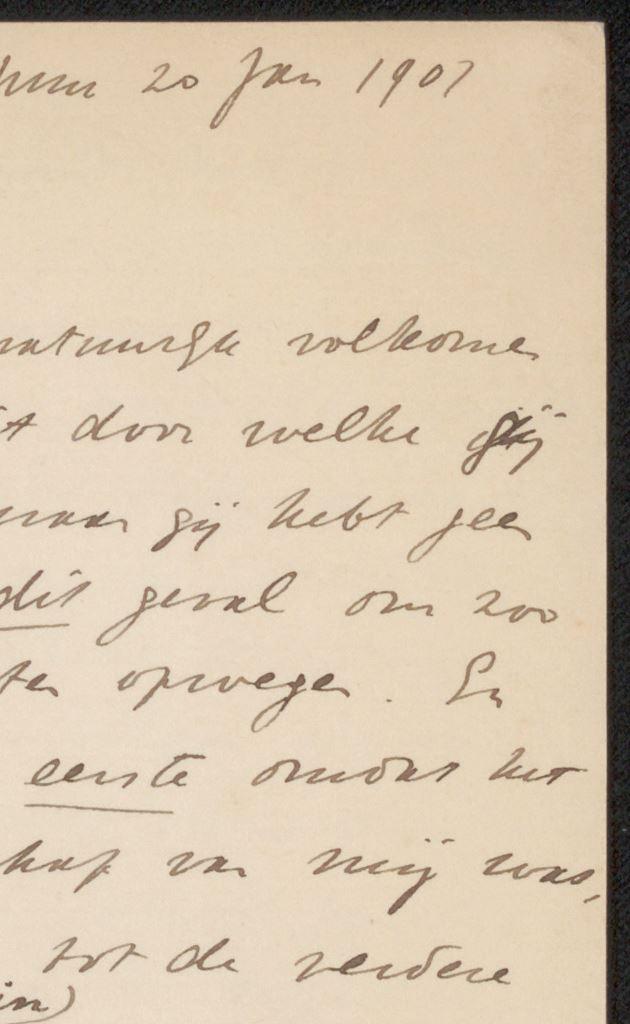 20 Jan 1907
natuurlijk volkomen
door welke gij
maar gij hebt geen
dit geval om zoo
ten opwegen. En
eerste omdat het
van mij was,
tot de verdere
in)